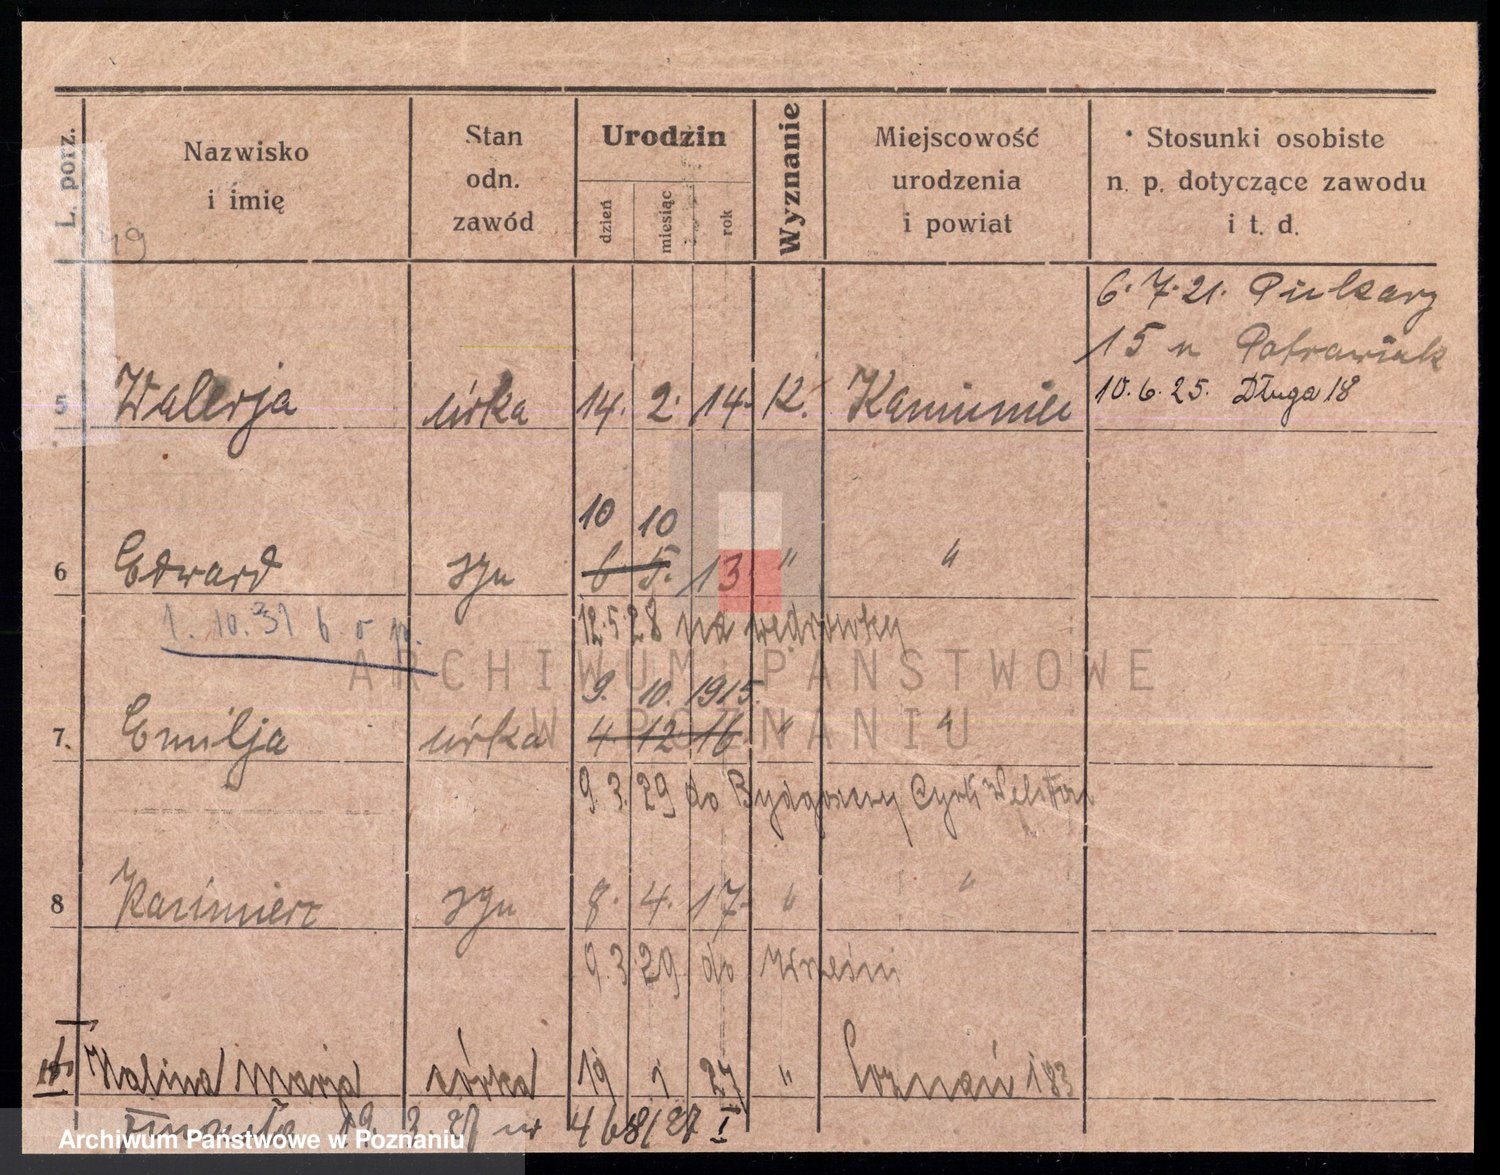 L. porz.
Nazwisko
i imię
Stan
odn.
zawód
Urodzin
dzień
miesiąc
rok
Wyznanie
Miejscowość
urodzenia
i powiat
Stosunki osobiste
n. p. dotyczące zawodu
i t. d.
49
6. 7. 21. Piekary
15 u Patrawiak
10. 6. 25. Długa 18
5 Walerja córka 14. 2. 14. K. Kamieniec
10 10
6 Edward syn 6 5. 13 " "
1. 10. 31 b. o p.
12. 5. 28 na wędrówkę
9. 10. 1915.
7. Emilja córka 4. 12 16 " "
9. 3. 29 do Bydgoszczy Cyrk
8 Kazimierz syn 8. 4. 17. " "
9. 3. 29 do Wrześni
Halina Marja córka 19 1 27 " Poznań 183
Zmarła 19. 3. 27 nr 468/27 I
ARCHIWUM PAŃSTWOWE
W POZNANIU
Archiwum Państwowe w Poznaniu